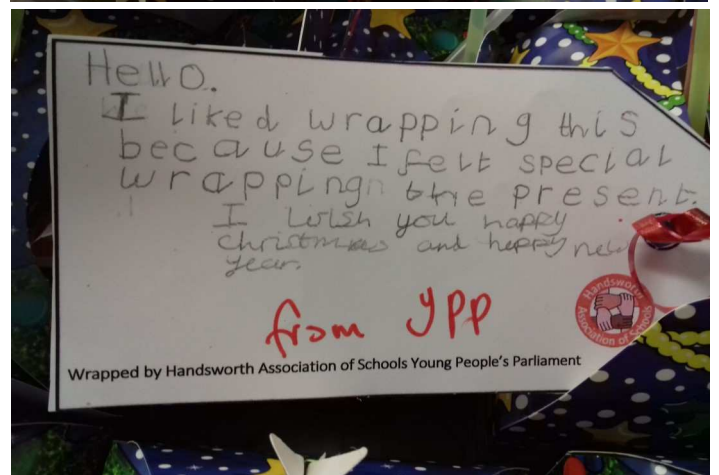 Hello.
I liked wrapping this
because I felt special
wrapping the present.
I wish you happy
christmas and happy new
year.
from YPP
Handsworth
Association of Schools
Wrapped by Handsworth Association of Schools Young People's Parliament